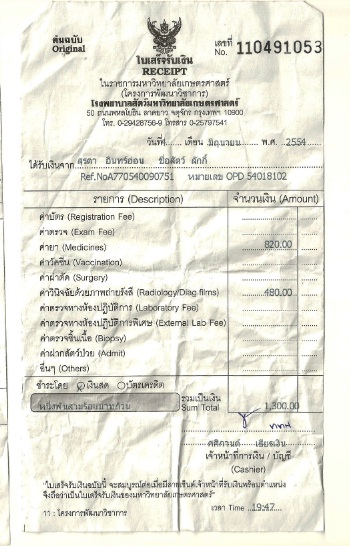 ต้นฉบับ
Original
เลขที่
No. 110491053
ใบเสร็จรับเงิน
RECEIPT
ในราชการมหาวิทยาลัยเกษตรศาสตร์
(โครงการพัฒนาวิชาการ)
โรงพยาบาลสัตว์มหาวิทยาลัยเกษตรศาสตร์
50 ถนนพหลโยธิน ลาดยาว จตุจักร กรุงเทพฯ 10900
โทร. 0-29428756-9 โทรสาร 0-25797541
วันที่ เดือน มิถุนายน พ.ศ. 2554
ได้รับเงินจาก สุรดา อินทร์อ่อน ชื่อสัตว์ ผักกี้
Ref.NoA770540090751 หมายเลข OPD 54018102
รายการ (Description) จำนวนเงิน (Amount)
ค่าบัตร (Registration Fee)
ค่าตรวจ (Exam Fee)
ค่ายา (Medicines) 820.00
ค่าวัคซีน (Vaccination)
ค่าผ่าตัด (Surgery)
ค่าวินิจฉัยด้วยภาพถ่ายรังสี (Radiology/Diag.films) 480.00
ค่าตรวจทางห้องปฏิบัติการ (Laboratory Fee)
ค่าตรวจทางห้องปฏิบัติการพิเศษ (External Lab Fee)
ค่าตรวจชิ้นเนื้อ (Biopsy)
ค่าฝากสัตว์ป่วย (Admit)
อื่นๆ (Others)
ชำระโดย เงินสด บัตรเครดิต
หนึ่งพันสามร้อยบาทถ้วน
รวมเป็นเงิน
Sum Total 1,300.00
เจ้าหน้าที่การเงิน / บัญชี
(Cashier)
"ใบเสร็จรับเงินฉบับนี้ จะสมบูรณ์ต่อเมื่อมีลายเซ็นต์เจ้าหน้าที่รับเงินพร้อมตำแหน่ง
จึงถือว่าเป็นใบเสร็จรับเงินของมหาวิทยาลัยเกษตรศาสตร์"
11 : โครงการพัฒนาวิชาการ
เวลา Time 19:47